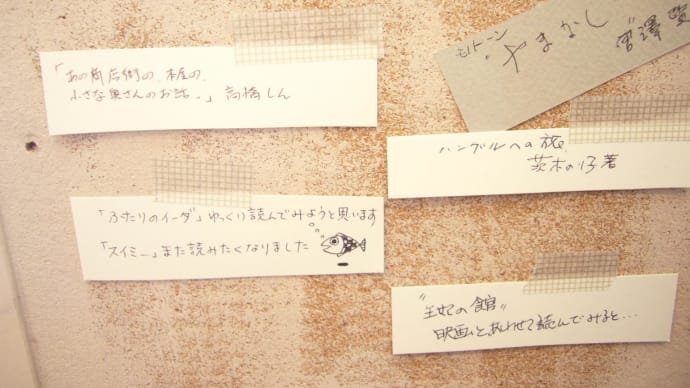 「あの商店街の、本屋の、
小さな奥さんのお話。」高橋しん
モノトーン
やまなし
宮澤賢
ハングルへの旅
茨木のり子著
「ふたりのイーダ」ゆっくり読んでみようと思います
「スイミー」また読みたくなりました
"王妃の館"
映画とあわせて読んでみると...